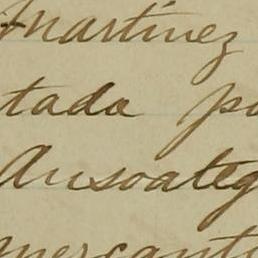 Martinez
tada po
Ansoateg
mercanti